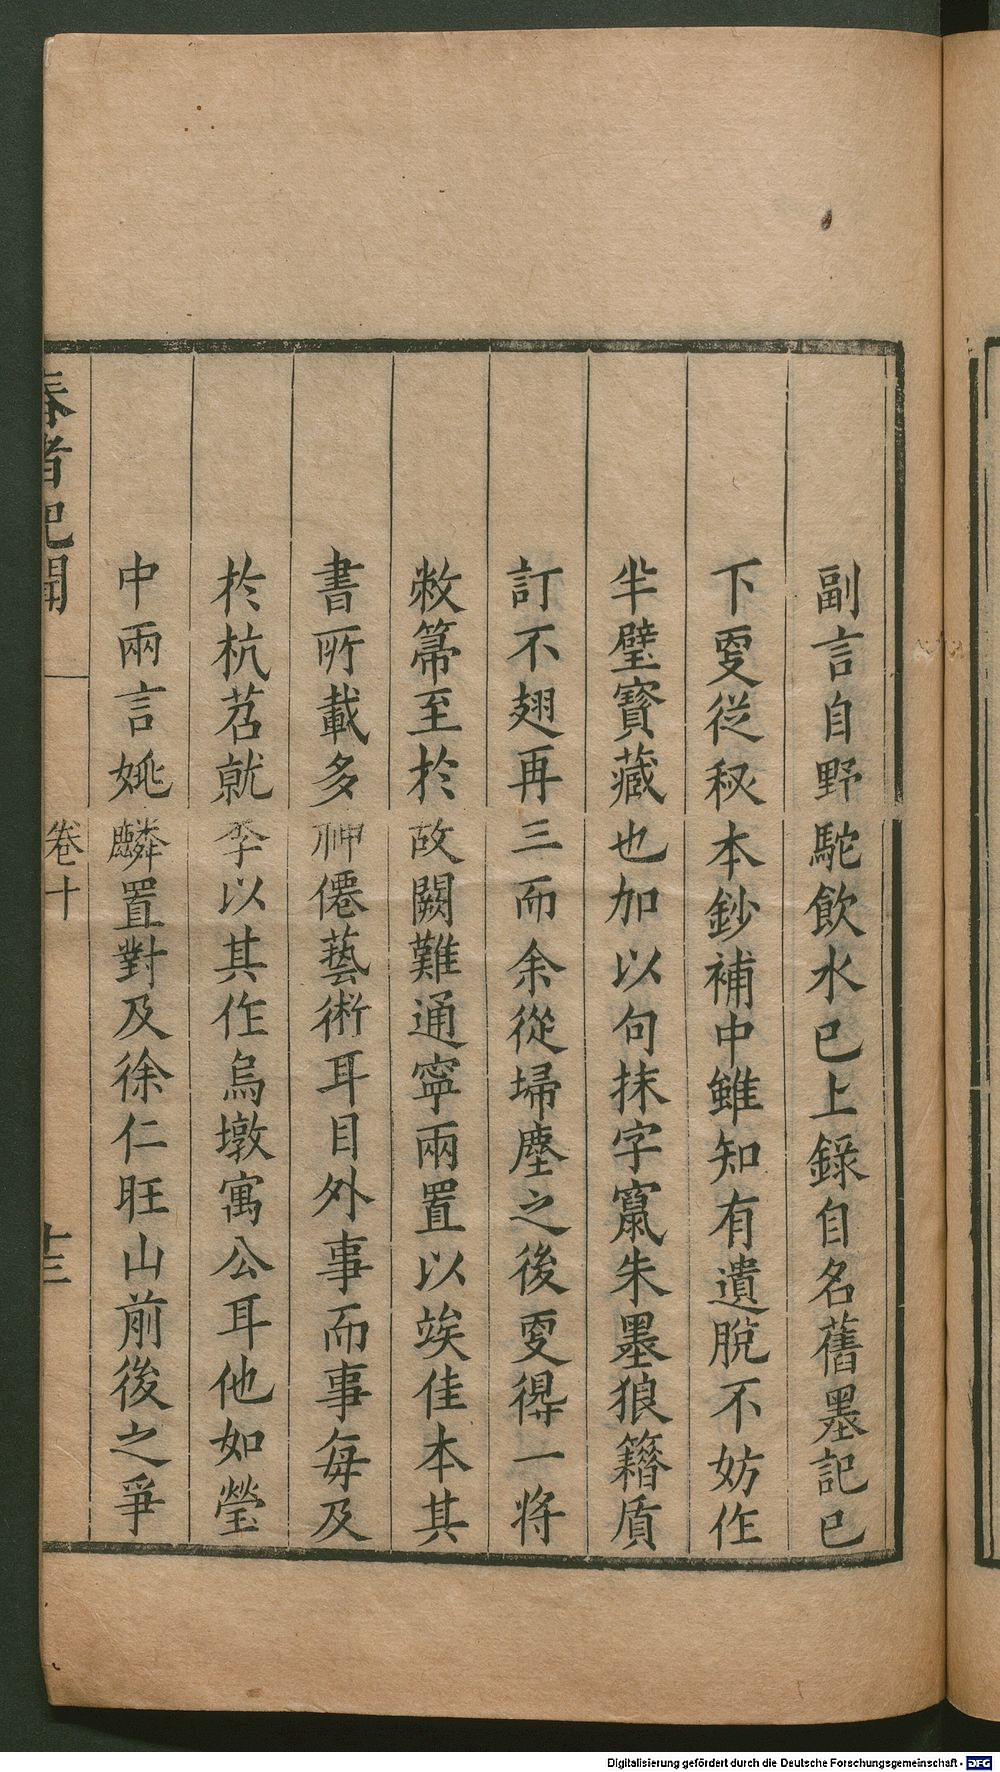 副言自野駝飲水已上錄自名舊墨記已
下叓從秘本鈔補中雖知有遺脫不妨作
半璧寶藏也加以句抹字竄朱墨狼籍盾
訂不翅再三而余從埽塵之後叓得一將
敝箒至於故闕難通寧兩置以竢佳本其
書所載多神僊藝術耳目外事而事每及
於杭苕就李以其作烏墩寓公耳他如瑩
中兩言姚麟置對及徐仁旺山前後之爭
春渚紀聞
卷十
十三
Digitalisierung gefördert durch die Deutsche Forschungsgemeinschaft - DFG